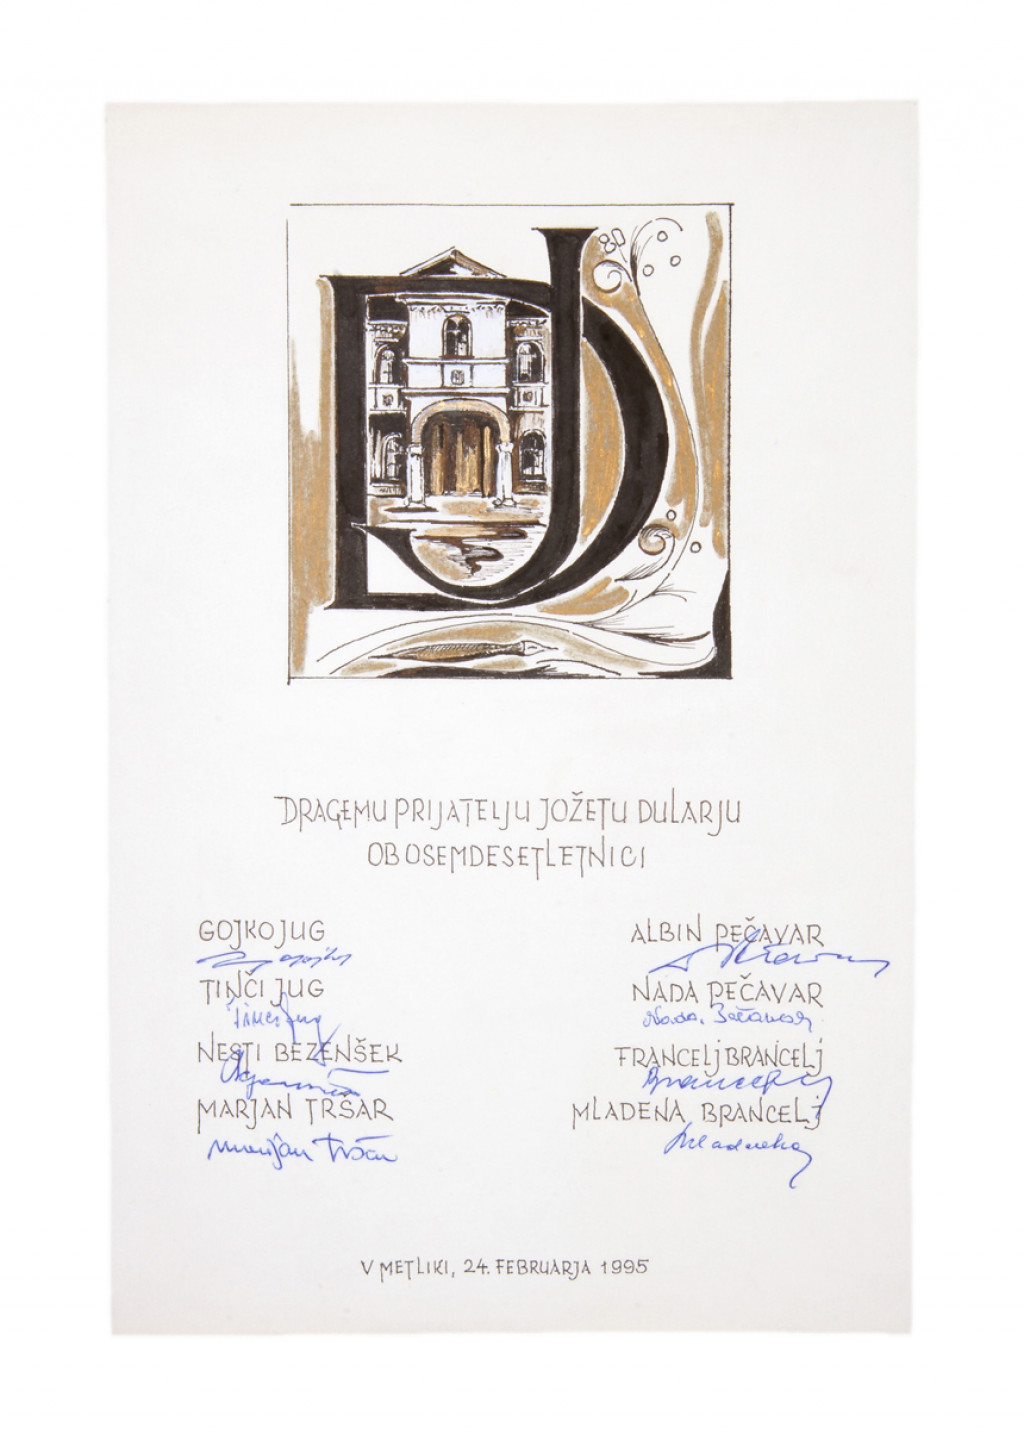 DJ
80
DRAGEMU PRIJATELJU JOŽETU DULARJU
OB OSEMDESETLETNICI
GOJKO JUG
TINČI JUG
Tinci Jug
NESTI BEZENŠEK
MARJAN TRŠAR
Marijan Tršar
ALBIN PEČAVAR
NADA PEČAVAR
Nada Pečavar
FRANCELJ BRANCELJ
Brancelj
MLADENA BRANCELJ
V METLIKI, 24. FEBRUARJA 1995